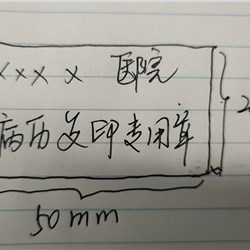 xxx x 医院
病历复印专用章
2
50mm